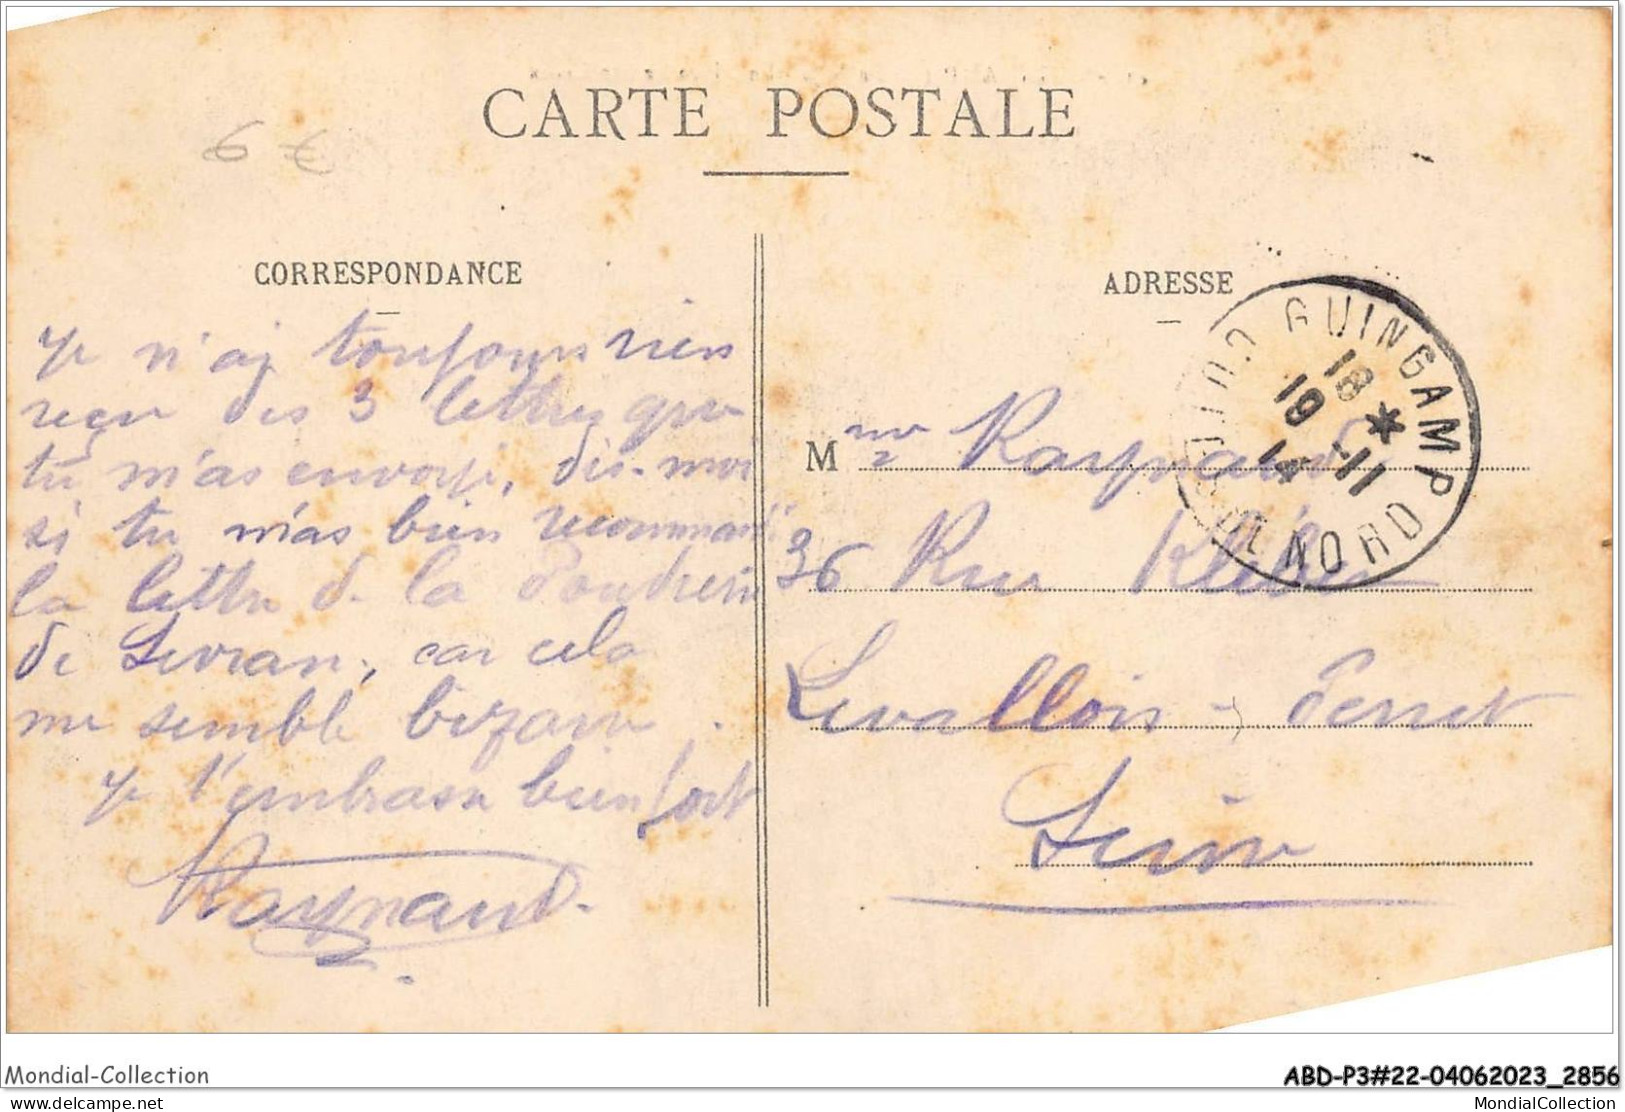 CARTE POSTALE
6 €
CORRESPONDANCE
Je n'ai toujours rien
reçu des 3 lettres que
tu m'as envoyé, dis-moi
si tu m'as bien recommandé
la lettre de la Poudrerie
de Sevran, car cela
me semble bizarre.
Je t'embrasse bien fort
Raynaud.
ADRESSE
GUINGAMP
18 *
19 -11
14
COTES DU NORD
Mme Raynaud
36 Rue Kléber
Levallois-Perret
Seine
Mondial-Collection
ABD-P3#22-04062023_2856
delcampe.net
MondialCollection